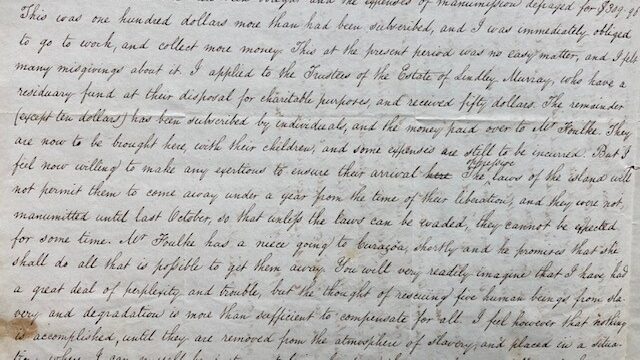 and the expenses of manumission defrayed for $309.
This was one hundred dollars more than had been subscribed, and I was immediately obliged
to go to work, and collect more money. This at the present period was no easy matter, and I felt
many misgivings about it. I applied to the Trustees of the Estate of Lindley Murray, who have a
residuary fund at their disposal for charitable purposes, and received fifty dollars. The remainder
(except ten dollars) has been subscribed by individuals, and the money paid over to Mr Foulke. They
are now to be brought here, with their children, and some expenses are still to be incurred. But I
feel now willing to make any exertions to ensure their arrival here. The laws of the island will
not permit them to come away under a year from the time of their liberation, and they were not
manumitted until last October, so that unless the laws can be evaded, they cannot be expected
for some time. Mr Foulke has a niece going to Curaçoa, shortly, and he promises that she
shall do all that is possible to get them away. You will very readily imagine that I have had
a great deal of perplexity and trouble, but the thought of rescuing five human beings from sla
very and degradation is more than sufficient to compensate for all. I feel however that nothing
is accomplished, until they are removed from the atmosphere of slavery, and placed in a situa